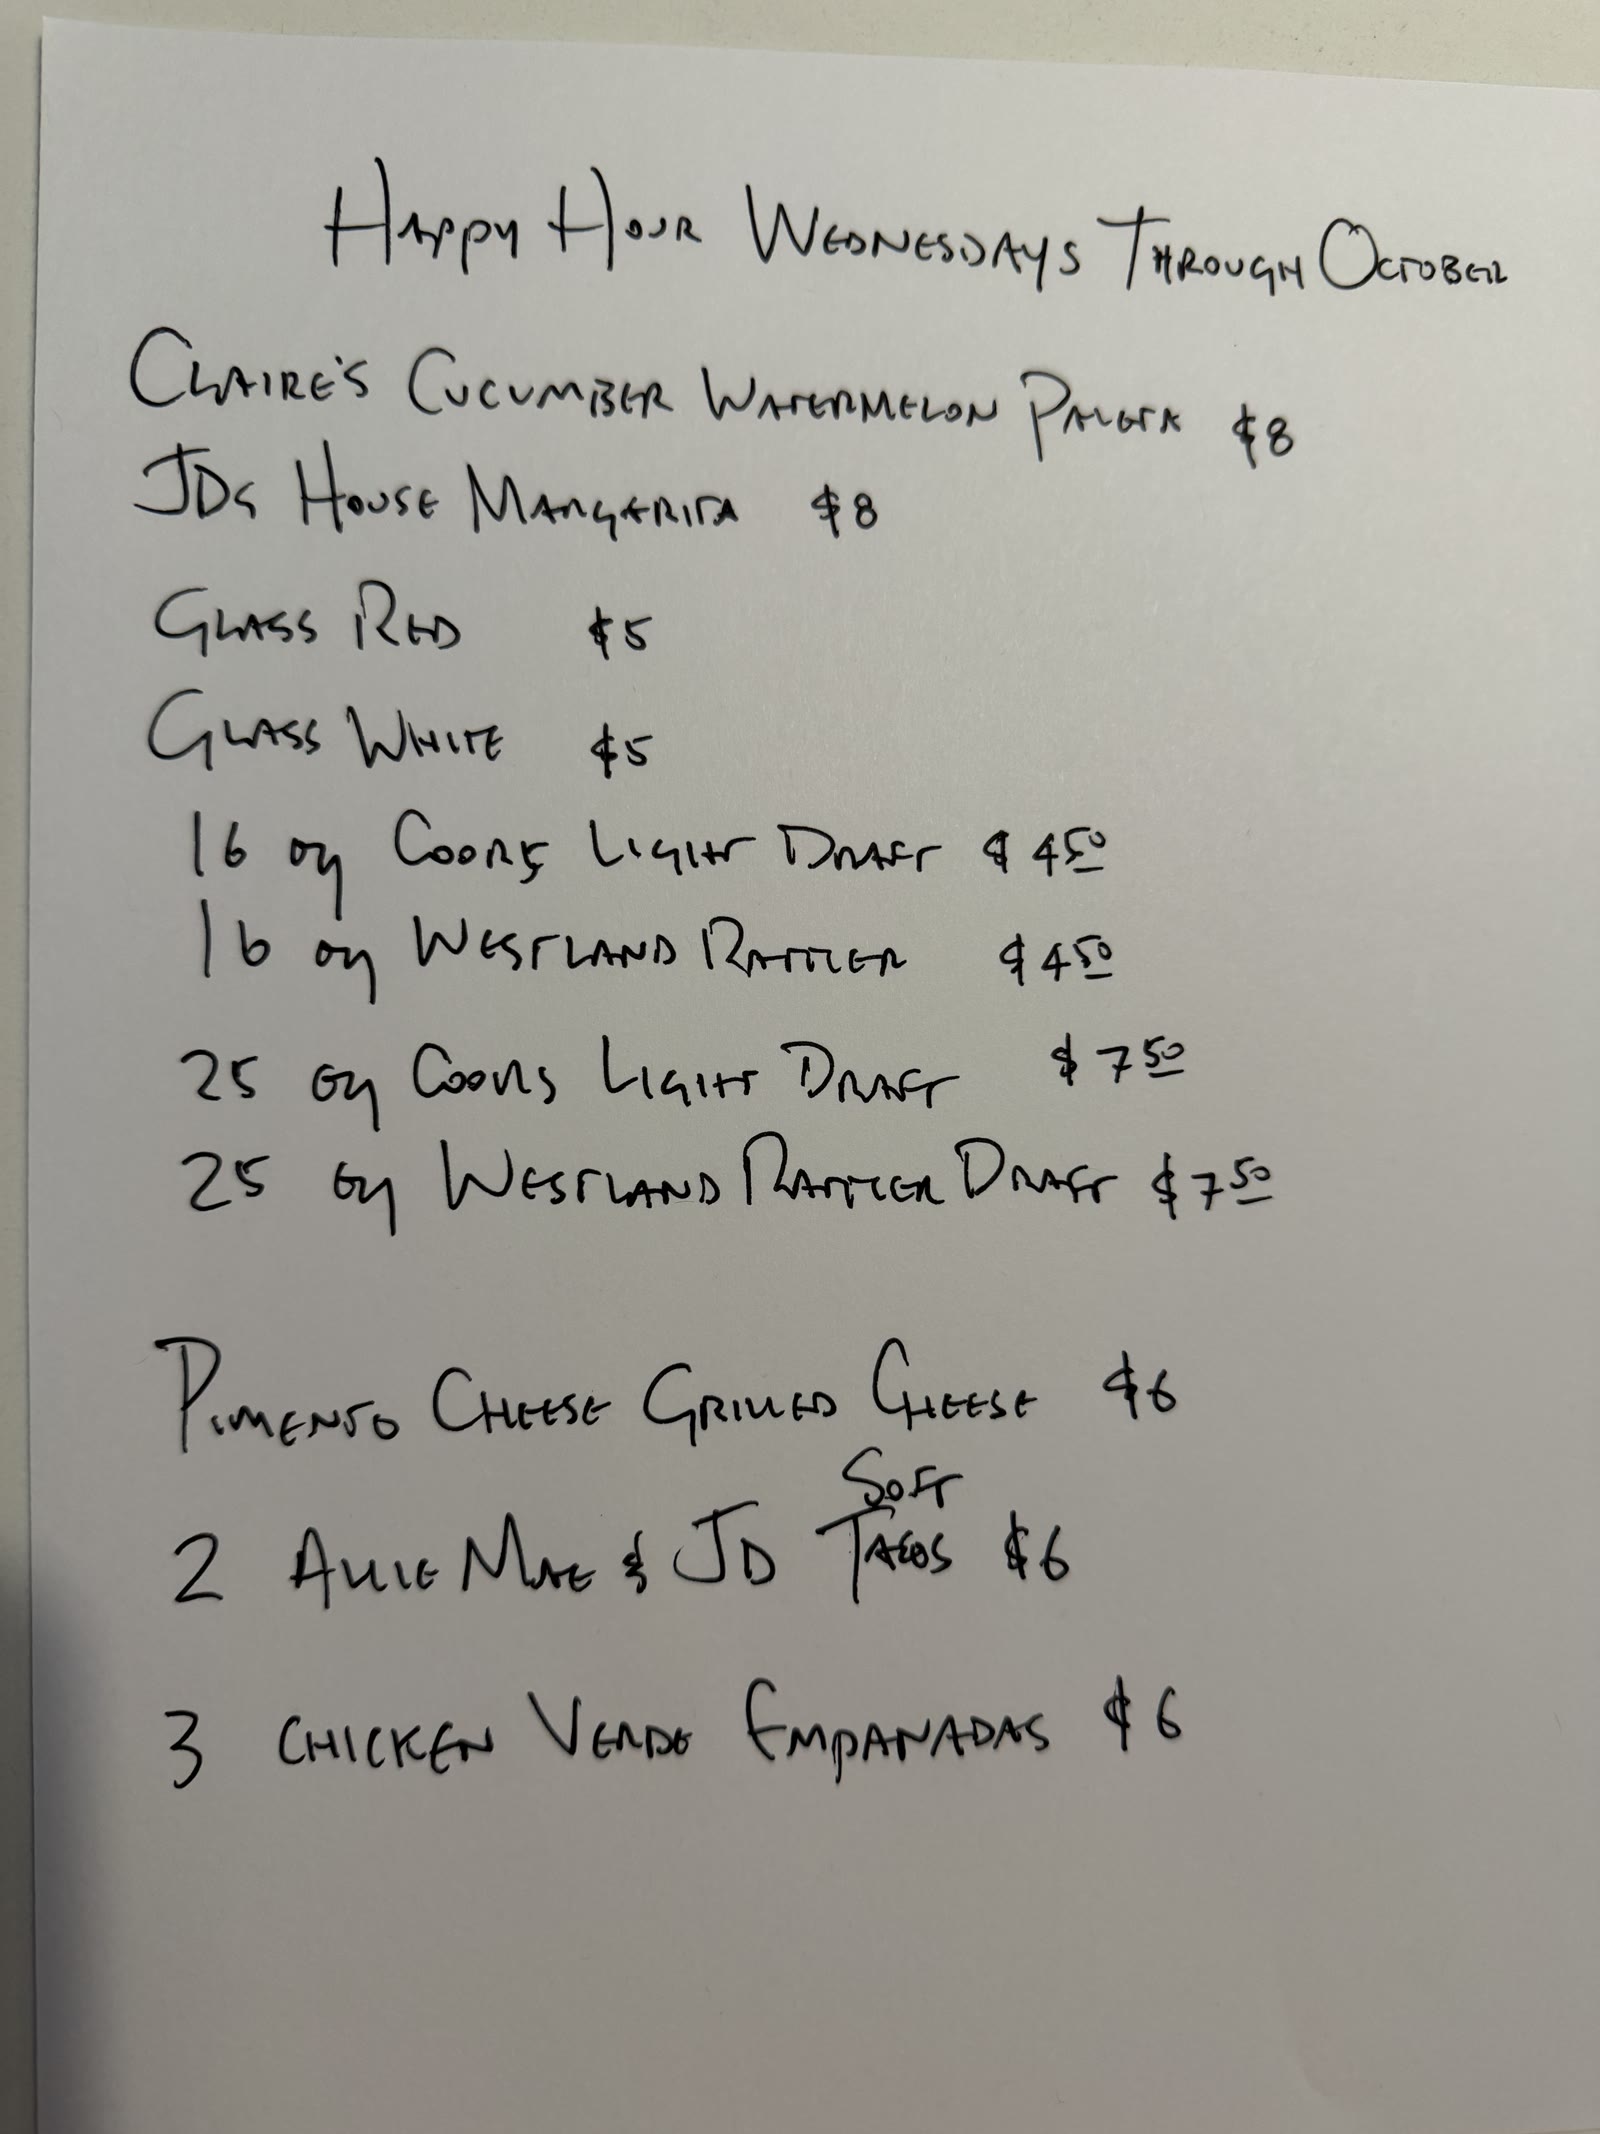 Happy Hour Wednesdays Through October
Claire's Cucumber Watermelon Paleta $8
JDs House Margerita $8
Glass Red $5
Glass White $5
16 oz Coors Light Draft $4 50
16 oz Westland Rattler $4 50
25 oz Coors Light Draft $7 50
25 oz Westland Rattler Draft $7 50
Pimento Cheese Grilled Cheese $6
2 Allie Mae & JD Soft Tacos $6
3 Chicken Verde Empanadas $6